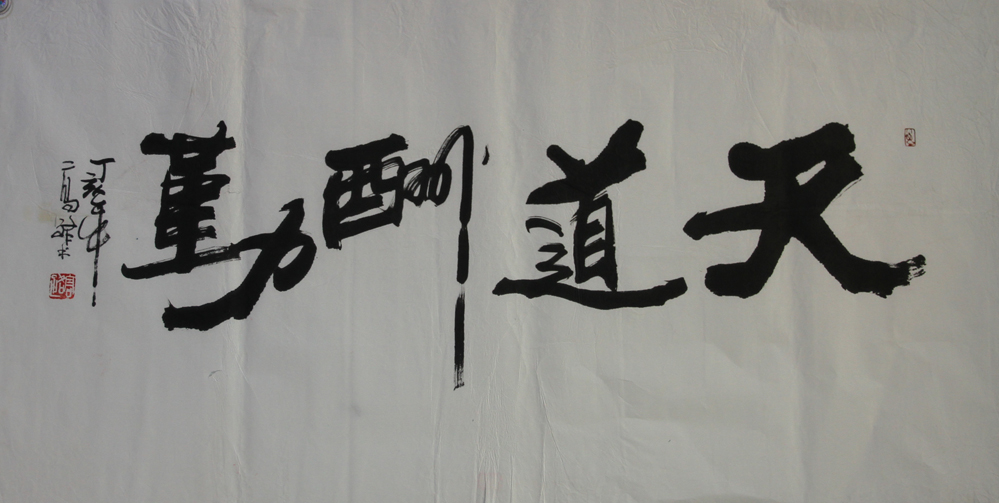 天道酬勤
丁亥年
二馬